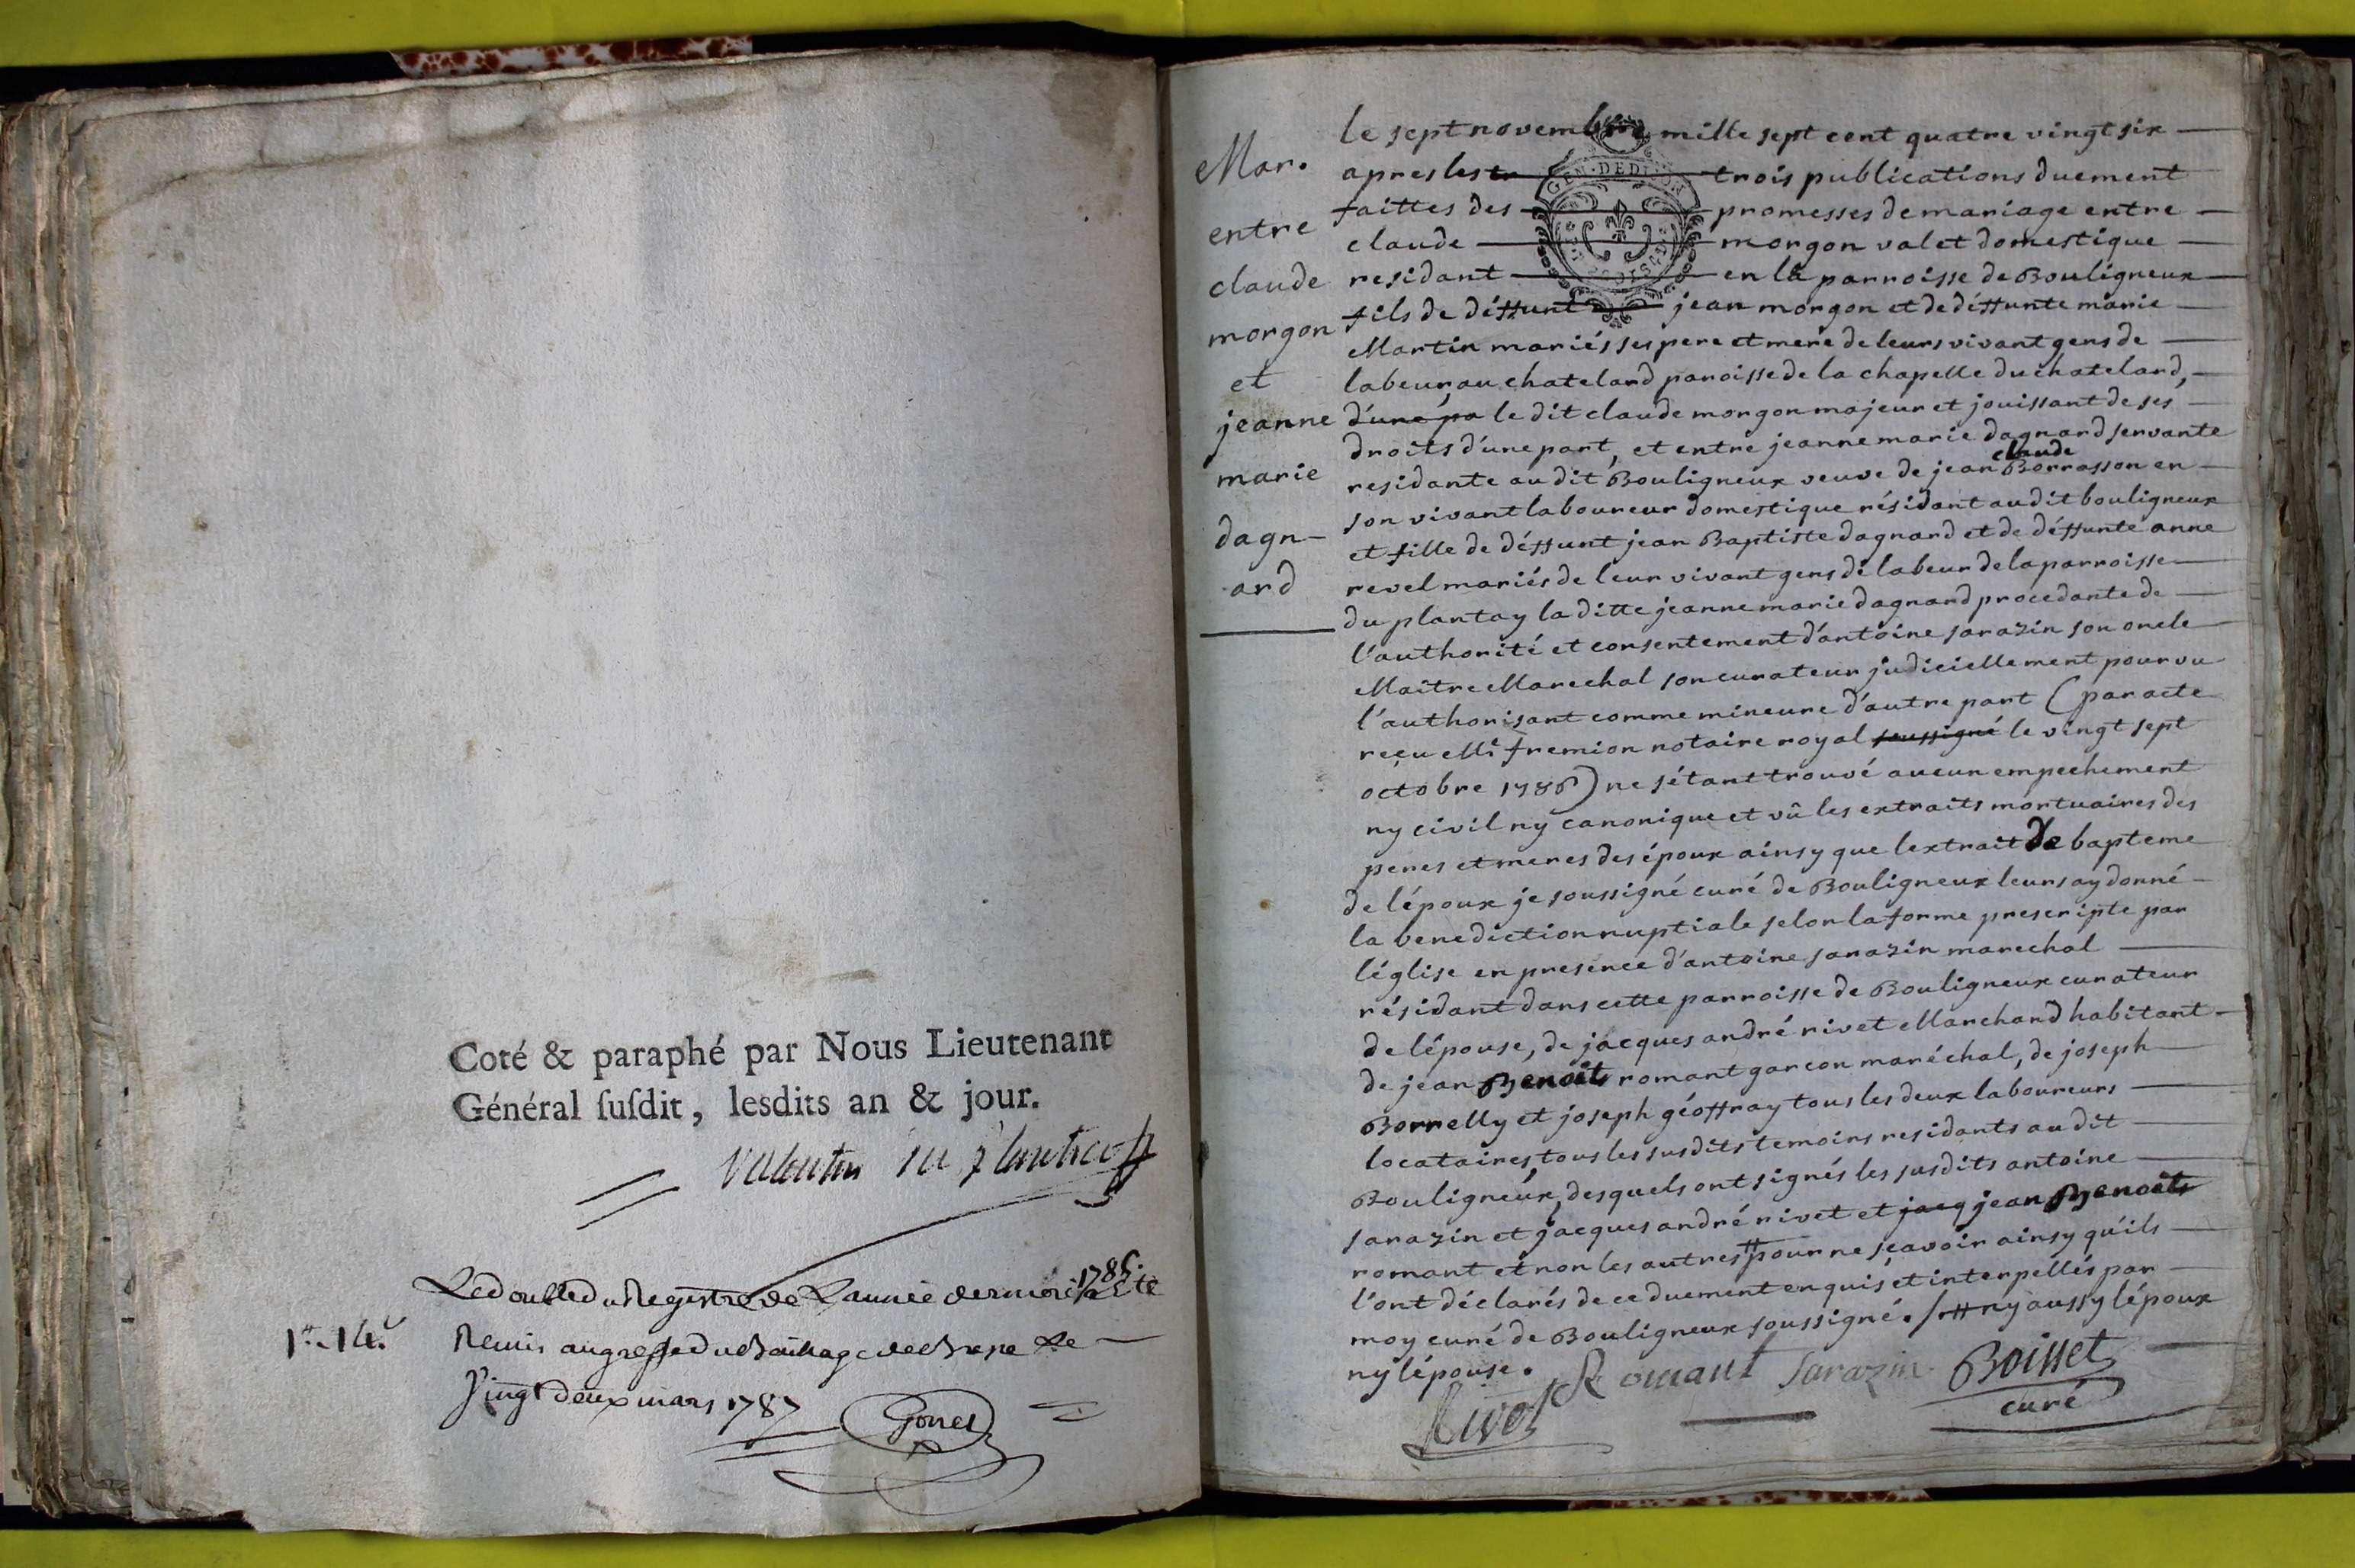 Coté & paraphé par Nous Lieutenant
Général ſuſdit, lesdits an & jour.
Valentin du plantier
Le double du Registre de L'année derniere 1786. a Eté
1ᵗ. 14ˢ
Remis au greffe du Bailliage de Bresse Le
Vingt deux mars 1787
Gones
Mar.
entre
claude
morgon
et
jeanne
marie
dagn-
ard
le sept novembre mille sept cent quatre vingt six
apres les tr trois publications duement
GEN·DE DIJON
faittes des promesses de mariage entre
claude morgon valet domestique
residant en la parroisse de Bouligneux
fils de déffunt jean morgon et de déffunte marie
Martin mariés ses pere et mere de leurs vivant gens de
labeur, au chatelard paroisse de la chapelle du chatelard,
d'une pa le dit claude morgon majeur et jouissant de ses
droits d'une part, et entre jeanne marie dagnard servante
claude
residante au dit Bouligneux veuve de jean Borrasson en
son vivant laboureur domestique résidant au dit bouligneux
et fille de déffunt jean Baptiste dagnard et de déffunte anne
revel mariés de leur vivant gens de labeur de la parroisse
du plantay la ditte jeanne marie dagnard procedante de
l'authorité et consentement d'antoine sarazin son oncle
Maitre Marechal son curateur judiciellement pourvu
l'authorisant comme mineure d'autre part (par acte
reçu Mᵉ fremion notaire royal soussigné le vingt sept
octobre 1786) ne s'étant trouvé aucun empechement
ny civil ny canonique et vû les extraits mortuaires des
peres et meres des époux ainsy que lextrait de bapteme
de lépoux je soussigné curé de Bouligneux leurs ay donné
la benediction nuptiale selon la forme prescripte par
léglise en presence d'antoine sarazin marechal
résidant dans cette parroisse de Bouligneux curateur
de lépouse, de jacques andré rivet Marchand habitant
de jean Benoits romant garcon maréchal, de joseph
Borrelly et joseph géoffray tous les deux laboureurs
locataires, tous les susdits temoins residants au dit
Bouligneux, desquels ont signés les susdits antoine
sarazin et jacques andré rivet et jacq jean Benoits
romant et non les autres # pour ne sçavoir ainsy qu'ils
l'ont déclarés de ce duement enquis et interpellés par
moy curé de Bouligneux soussigné. / # ny aussy lépoux
ny lépouse.
Romant Sarazin Boisset
curé
Rivet